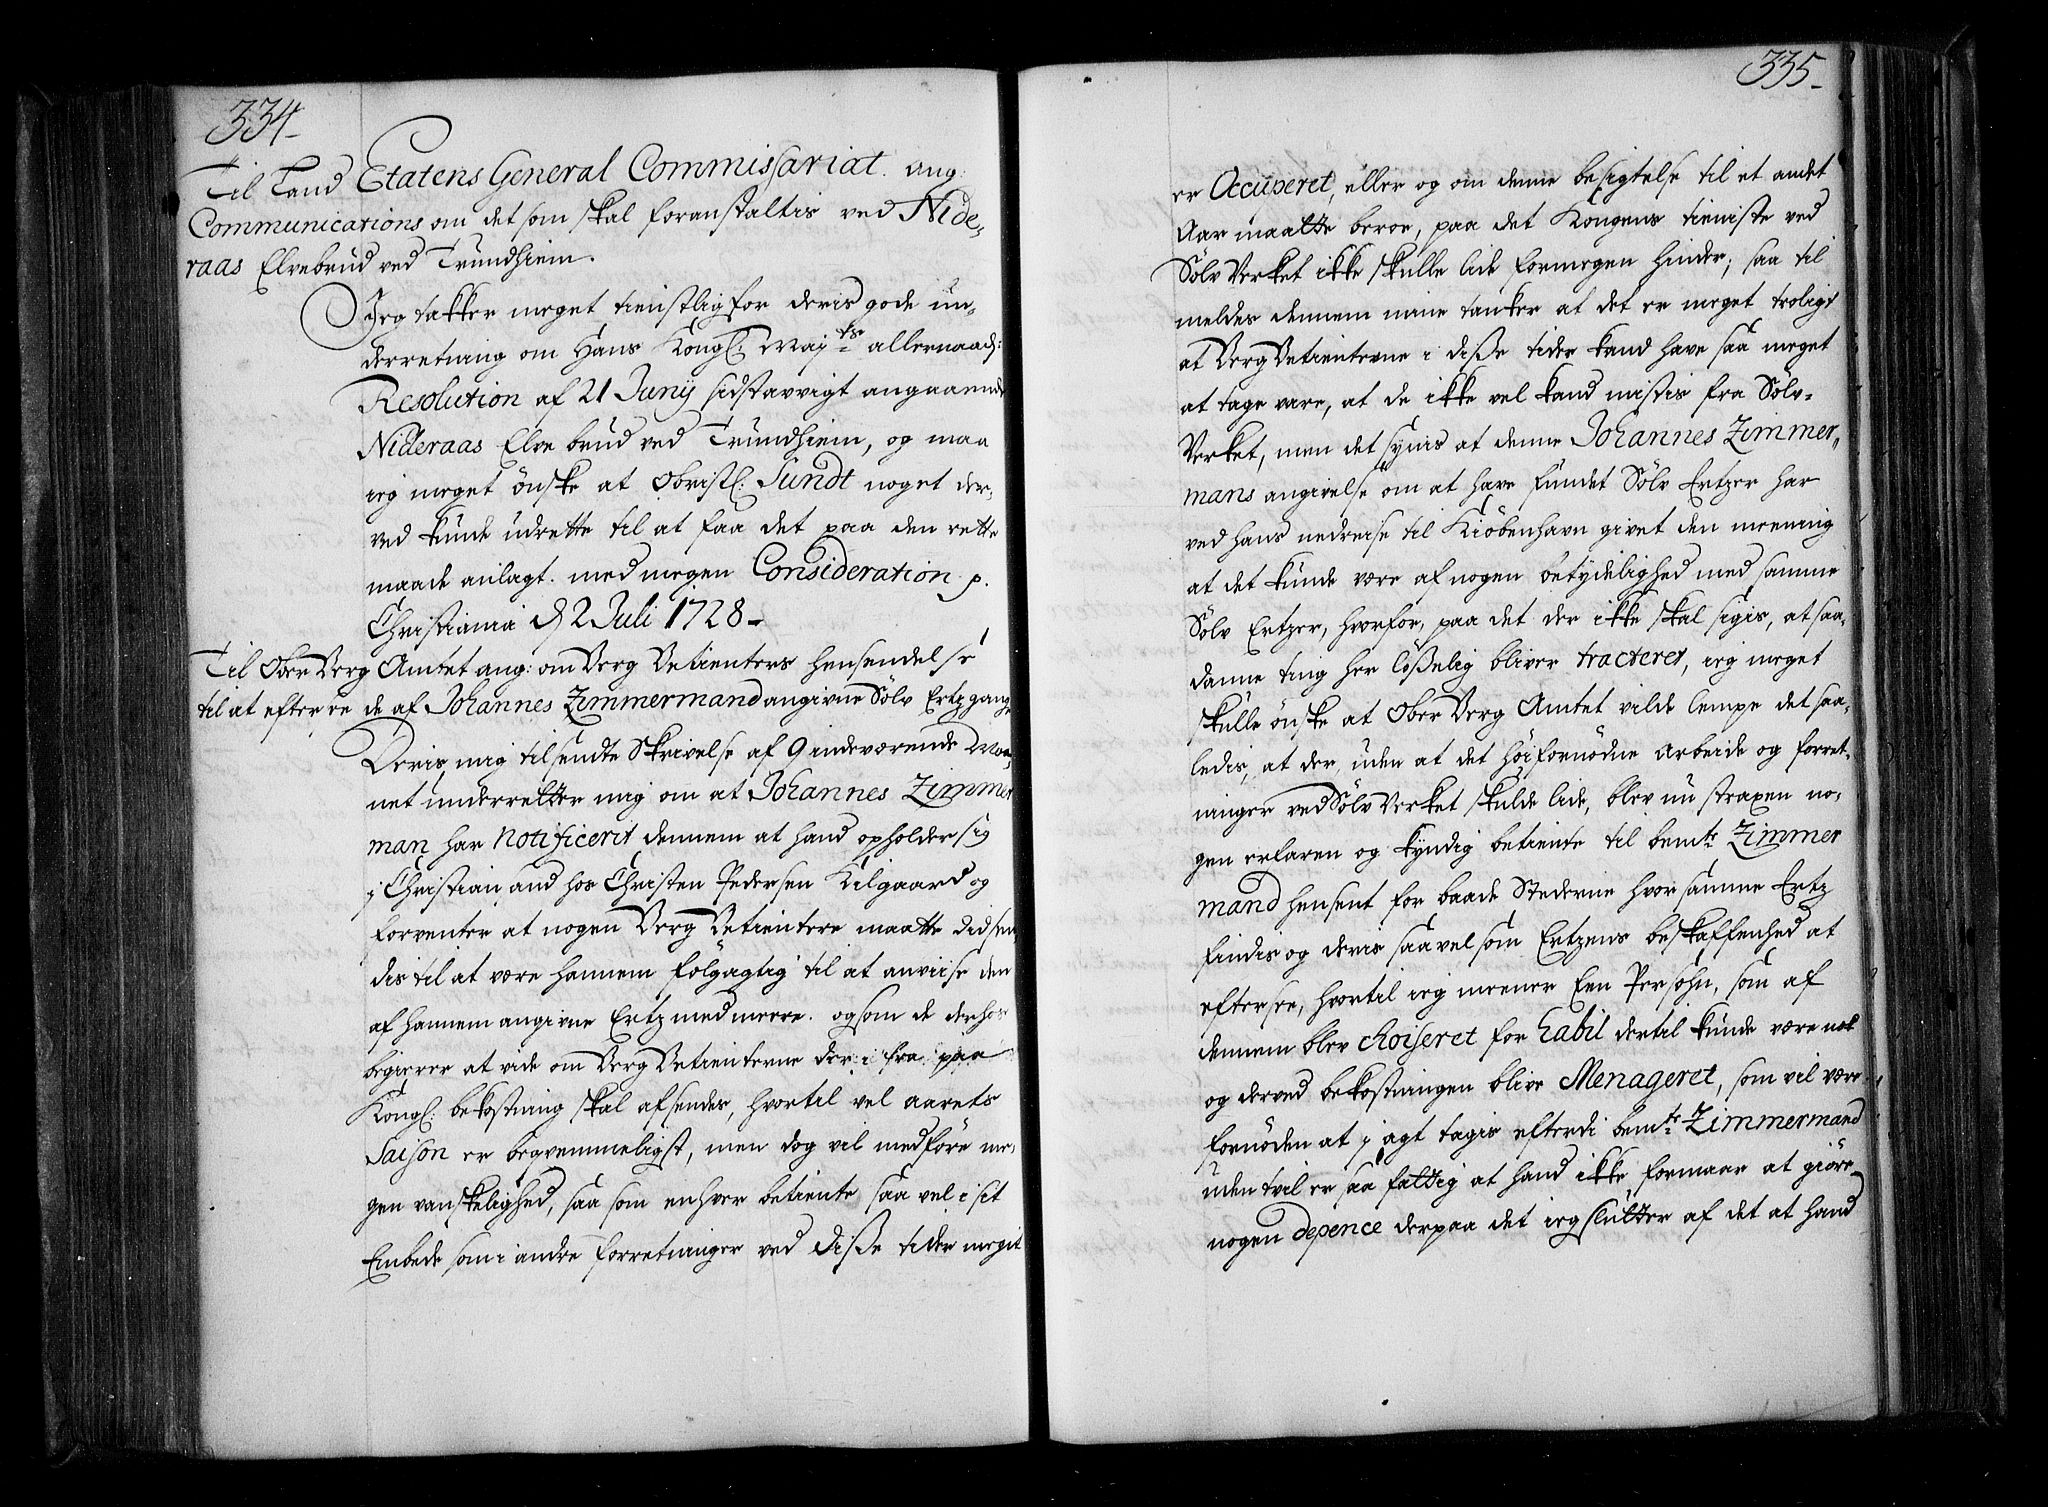 334.
Til Land Etatens General Commissariat. ang:
Communications om det som skal foranstaltis ved Nide-
raas Elvebrud ved Trundhiem.
Jeg takker meget tienstlig for deris gode un-
derretning om Hans Kongl: Mayts allernaads:
Resolution af 21 Junij sidstavvigt angaaende
Nideraas Elve brud ved Trundhiem, og maa
ieg meget ønske at Obristl: Sundt noget der-
ved kunde udrette til at faa det paa den rette
maade anlagt. med megen Consideration p.
Christiania d 2 Juli 1728.
Til Ober Berg Amtet ang: om Berg Betienters hensendelse
til at eftersee de af Johannes Zimmermand angivne Sølv Ertz gange
Deris mig tilsendte Skrivelse af 9 indeværende Maa-
net underretter mig om at Johannes Zimmer
man har notificerit dennem at hand opholder sig
i Christian sand hos Christen Pedersen Kilgaard og
forventer at nogen Berg Betientere maatte did sen-
dis til at være hannem følgagtig til at anviise den
af hannem angivne Ertz med meere. og som de derhos
begierer at vide om Berg Betienterne der i fra paa
Kongl: bekostning skal afsendes, hvortil vel aarets
Saison er beqvemmeligst, men dog vil medføre me-
gen vanskelighed, saa som enhver betiente saa vel i sit
Embede som i andre forretninger ved disse tider megit
335.
er Occuperet, eller og om denne besigtelse til et andet
Aar maatte beroe, paa det Kongens tieniste ved
Sølv Verket ikke skulle lide formegen hinder; saa til
meldes dennem mine tanker at det er meget troligt
at Berg Betienterne i disse tider kand have saa meget
at tage vare, at de ikke vel kand mistis fra Sølv-
Verket, men det synis at denne Johannes Zimmer-
mans angivelse om at have fundet Sølv Ertzer har
ved hans nedreise til Kiøbenhavn givet den meening
at det kunde være af nogen betydelighed med samme
Sølv Ertzer, hvorfor, paa det der ikke skal sigis, at saa-
danne ting her løsselig bliver tracteret, ieg meget
skulle ønske at Ober Berg Amtet vilde lempe det saa-
ledis, at der, uden at det høifornødne arbeide og forret-
ninger ved Sølv Verket skulde lide, blev nu straxen no-
gen erfaren og kyndig betiente til bemte Zimmer
mand hensent for baade Stederne hvor samme Ertz
findis og deris saavelsom Ertzens beskaffenhed at
eftersee, hvortil ieg meener Een Persohn, som af
dennem blev choiseret for habil dertil kunde være nok
og derved bekostningen blive Menageret, som vil være
fornøden at i agt tagis efterdi bemte Zimmermand
uden tvil er saa fattig at hand ikke formaar at giøre
nogen depence derpaa det ieg slutter af det at hand